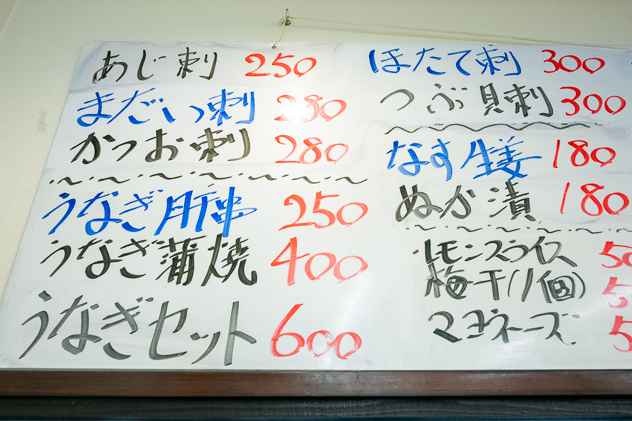 あじ刺 250
まだい刺 280
かつお刺 280
うなぎ肝串 250
うなぎ蒲焼 400
うなぎセット 600
ほたて刺 300
つぶ貝刺 300
なす生姜 180
ぬか漬 180
レモンスライス 50
梅干(1個) 5
マヨネーズ 5